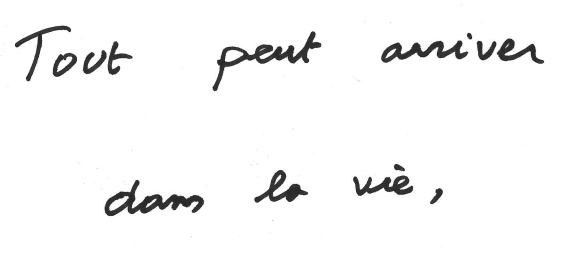 Tout peut arriver
dans la vie,